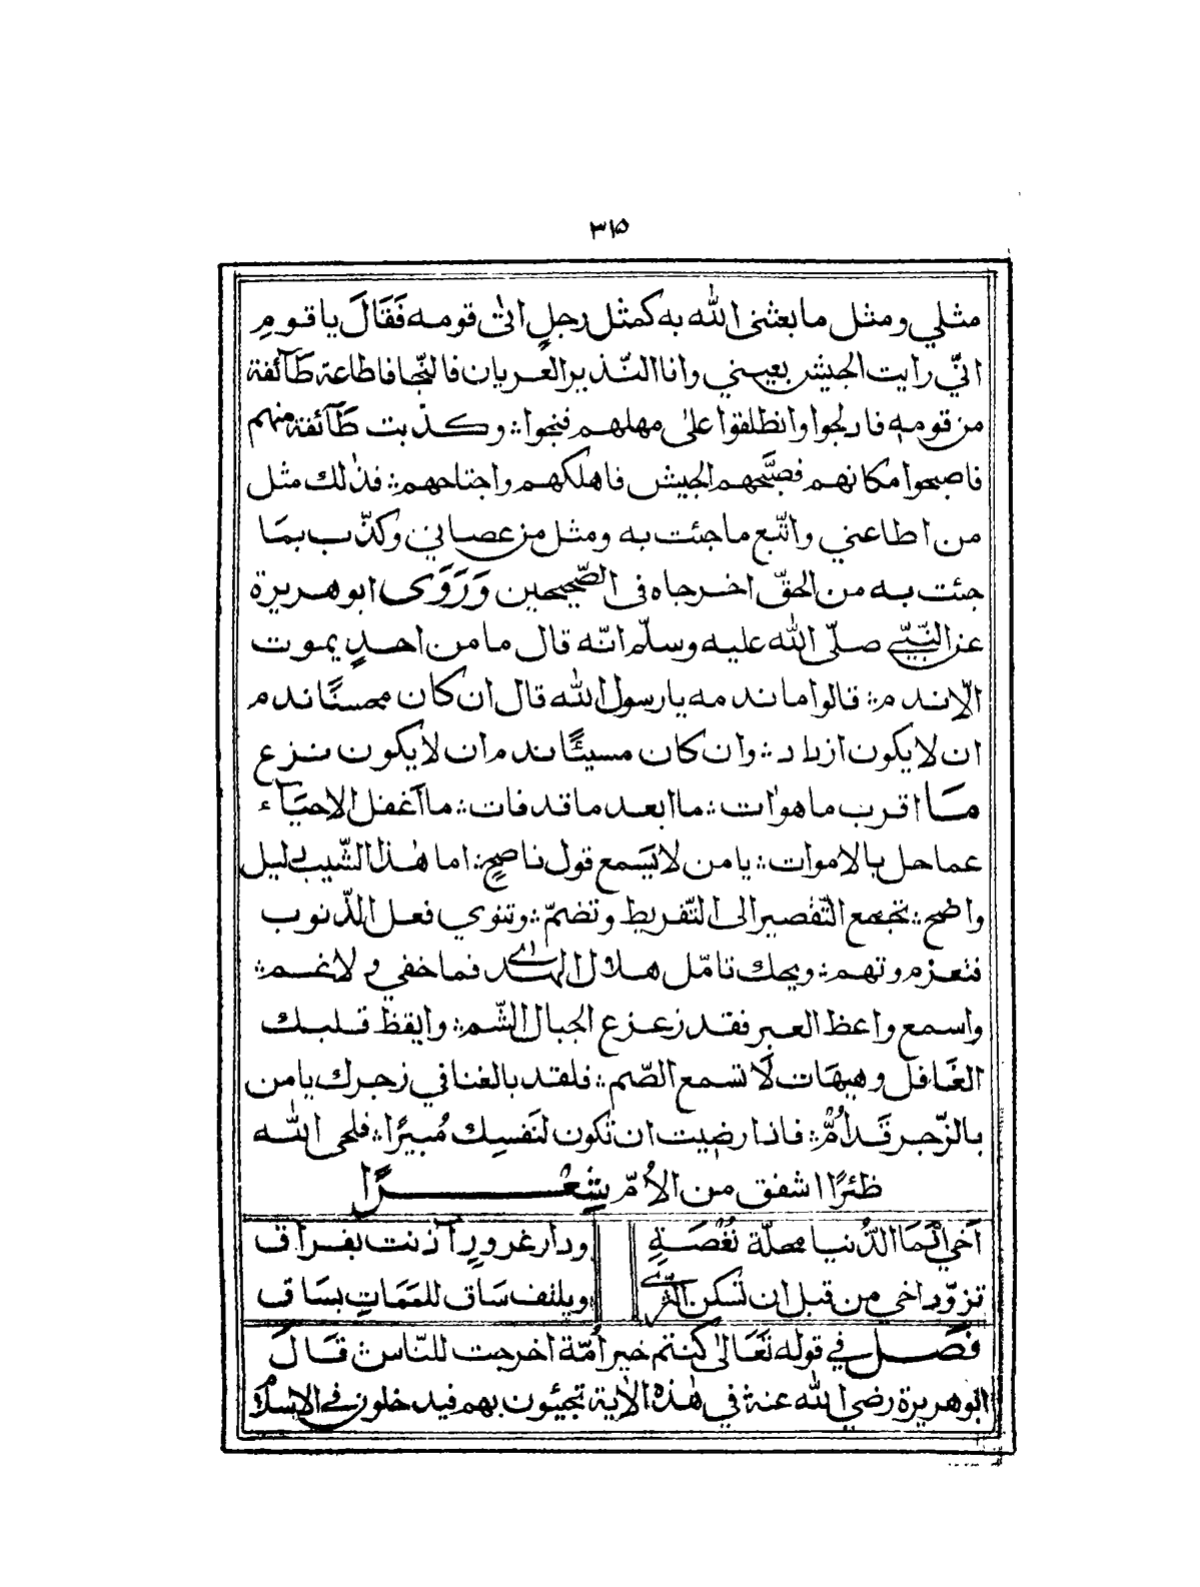 ٣١٥
مثلي ومثل ما بعثنى الله به كمثل رجلٍ اتٰى قومه فَقَالَ يا قومِ
انّي رايت الجيش بعيني وانا النّذير العريان فالنّجا فاطاعة طَآئفة
من قومه فادلجوا وانطلقوا علىٰ مهلهم فنجوا؞ وكذّبت طَآئفة منهم
فاصبحوا مكانهم فصبَّحهم الجيش فاهلكهم واجتاحهم؞ فذٰلك مثل
من اطاعني واتّبع ما جئت به ومثل من عصاني وكذّب بمَا
جئت به من الحقّ اخرجاه فى الصّحيحين وَرَوَى ابو هريرة
عن النّبيّ صلّى الله عليه وسلّم انّه قال ما من احدٍ يموت
الّا ندم؞ قالوا ما ندمه يا رسول الله قال ان كان محسنًا ندم
ان لا يكون ازداد؞ وان كان مسيئًا ندم ان لا يكون نزع
مَا اقرب ما هو اٰت؞ ما ابعد ما قد فات؞ ما اَغفل الاحيَآء
عما حل بالاموات؞ يا من لا يَسَمع قول ناصحٍ؞ اما هٰذا الشّيب دليل
واضح؞ تجمع التّقصير الى التّفريط وتضمّ؞ وتنوي فعل الذّنوب
فتعزم وتهم؞ ويحك تامّل هلال الهدٰى فما خفي ولا غم؞
واسمع واعظ العبر فقد زعزع الجبال الشّم؞ وايقظ قلبك
الغَافل وهيهَات لَا تسمع الصّم؞ فلقد بالغنا في زجرك يا من
بالزّجر قَد اُمّ؞ فاذا رضيت ان تكون لنَفسِك مُبيرًا؞ فلحى الله
ظئرًا اشفق من الاُمّ شِعْرًا
اَخي انّمَا الدُّنيا محلّة نُغْصَةٍ ودار غرورٍ آذنت بفراق
تزوّد اخي من قبل ان تسكن الثّرٰى ويلتف سَاق للمَمَاتِ بسَاق
فَصل في قوله تَعَالىٰ كنتم خير اُمّة اخرجت للنّاس؞ قَالَ
ابو هريرة رضي الله عنه في هٰذه الاٰية تجيئون بهم فيدخلون في الاسلام